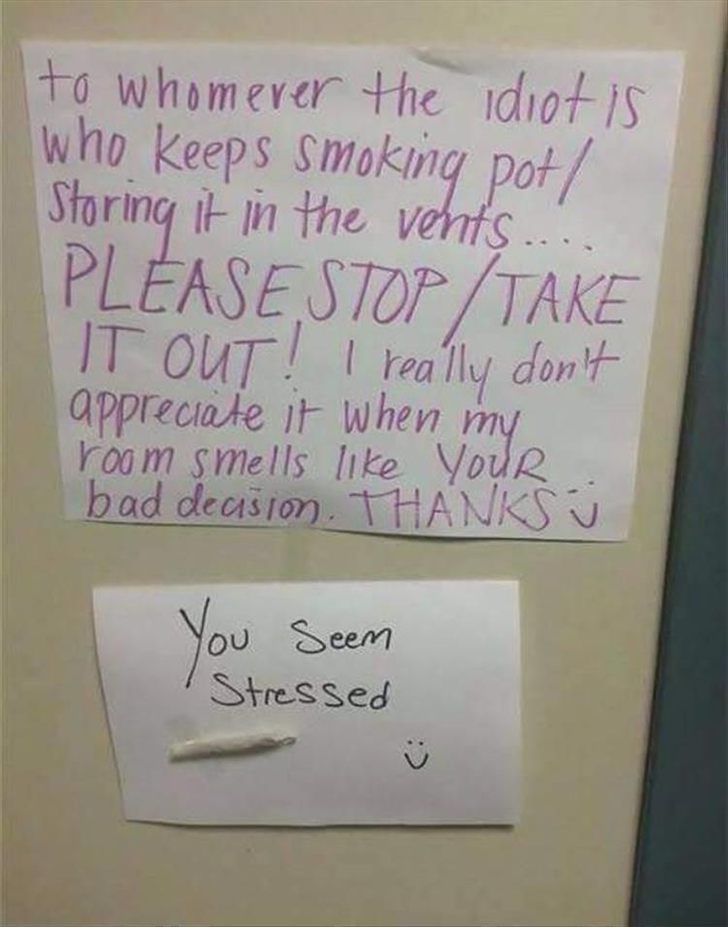 to whomever the idiot is
who keeps smoking pot/
storing it in the vents....
PLEASE STOP/TAKE
IT OUT! I really don't
appreciate it when my
room smells like YOUR
bad decision. THANKS :)
You seem
stressed
:)